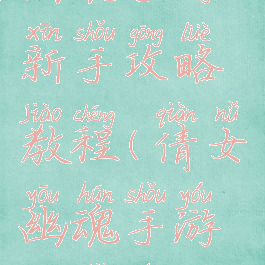 xīn shǒu gōng lüè
新手攻略
jiào chéng qiàn nǚ
教程(倩女
yōu hún shǒu yóu
幽魂手游